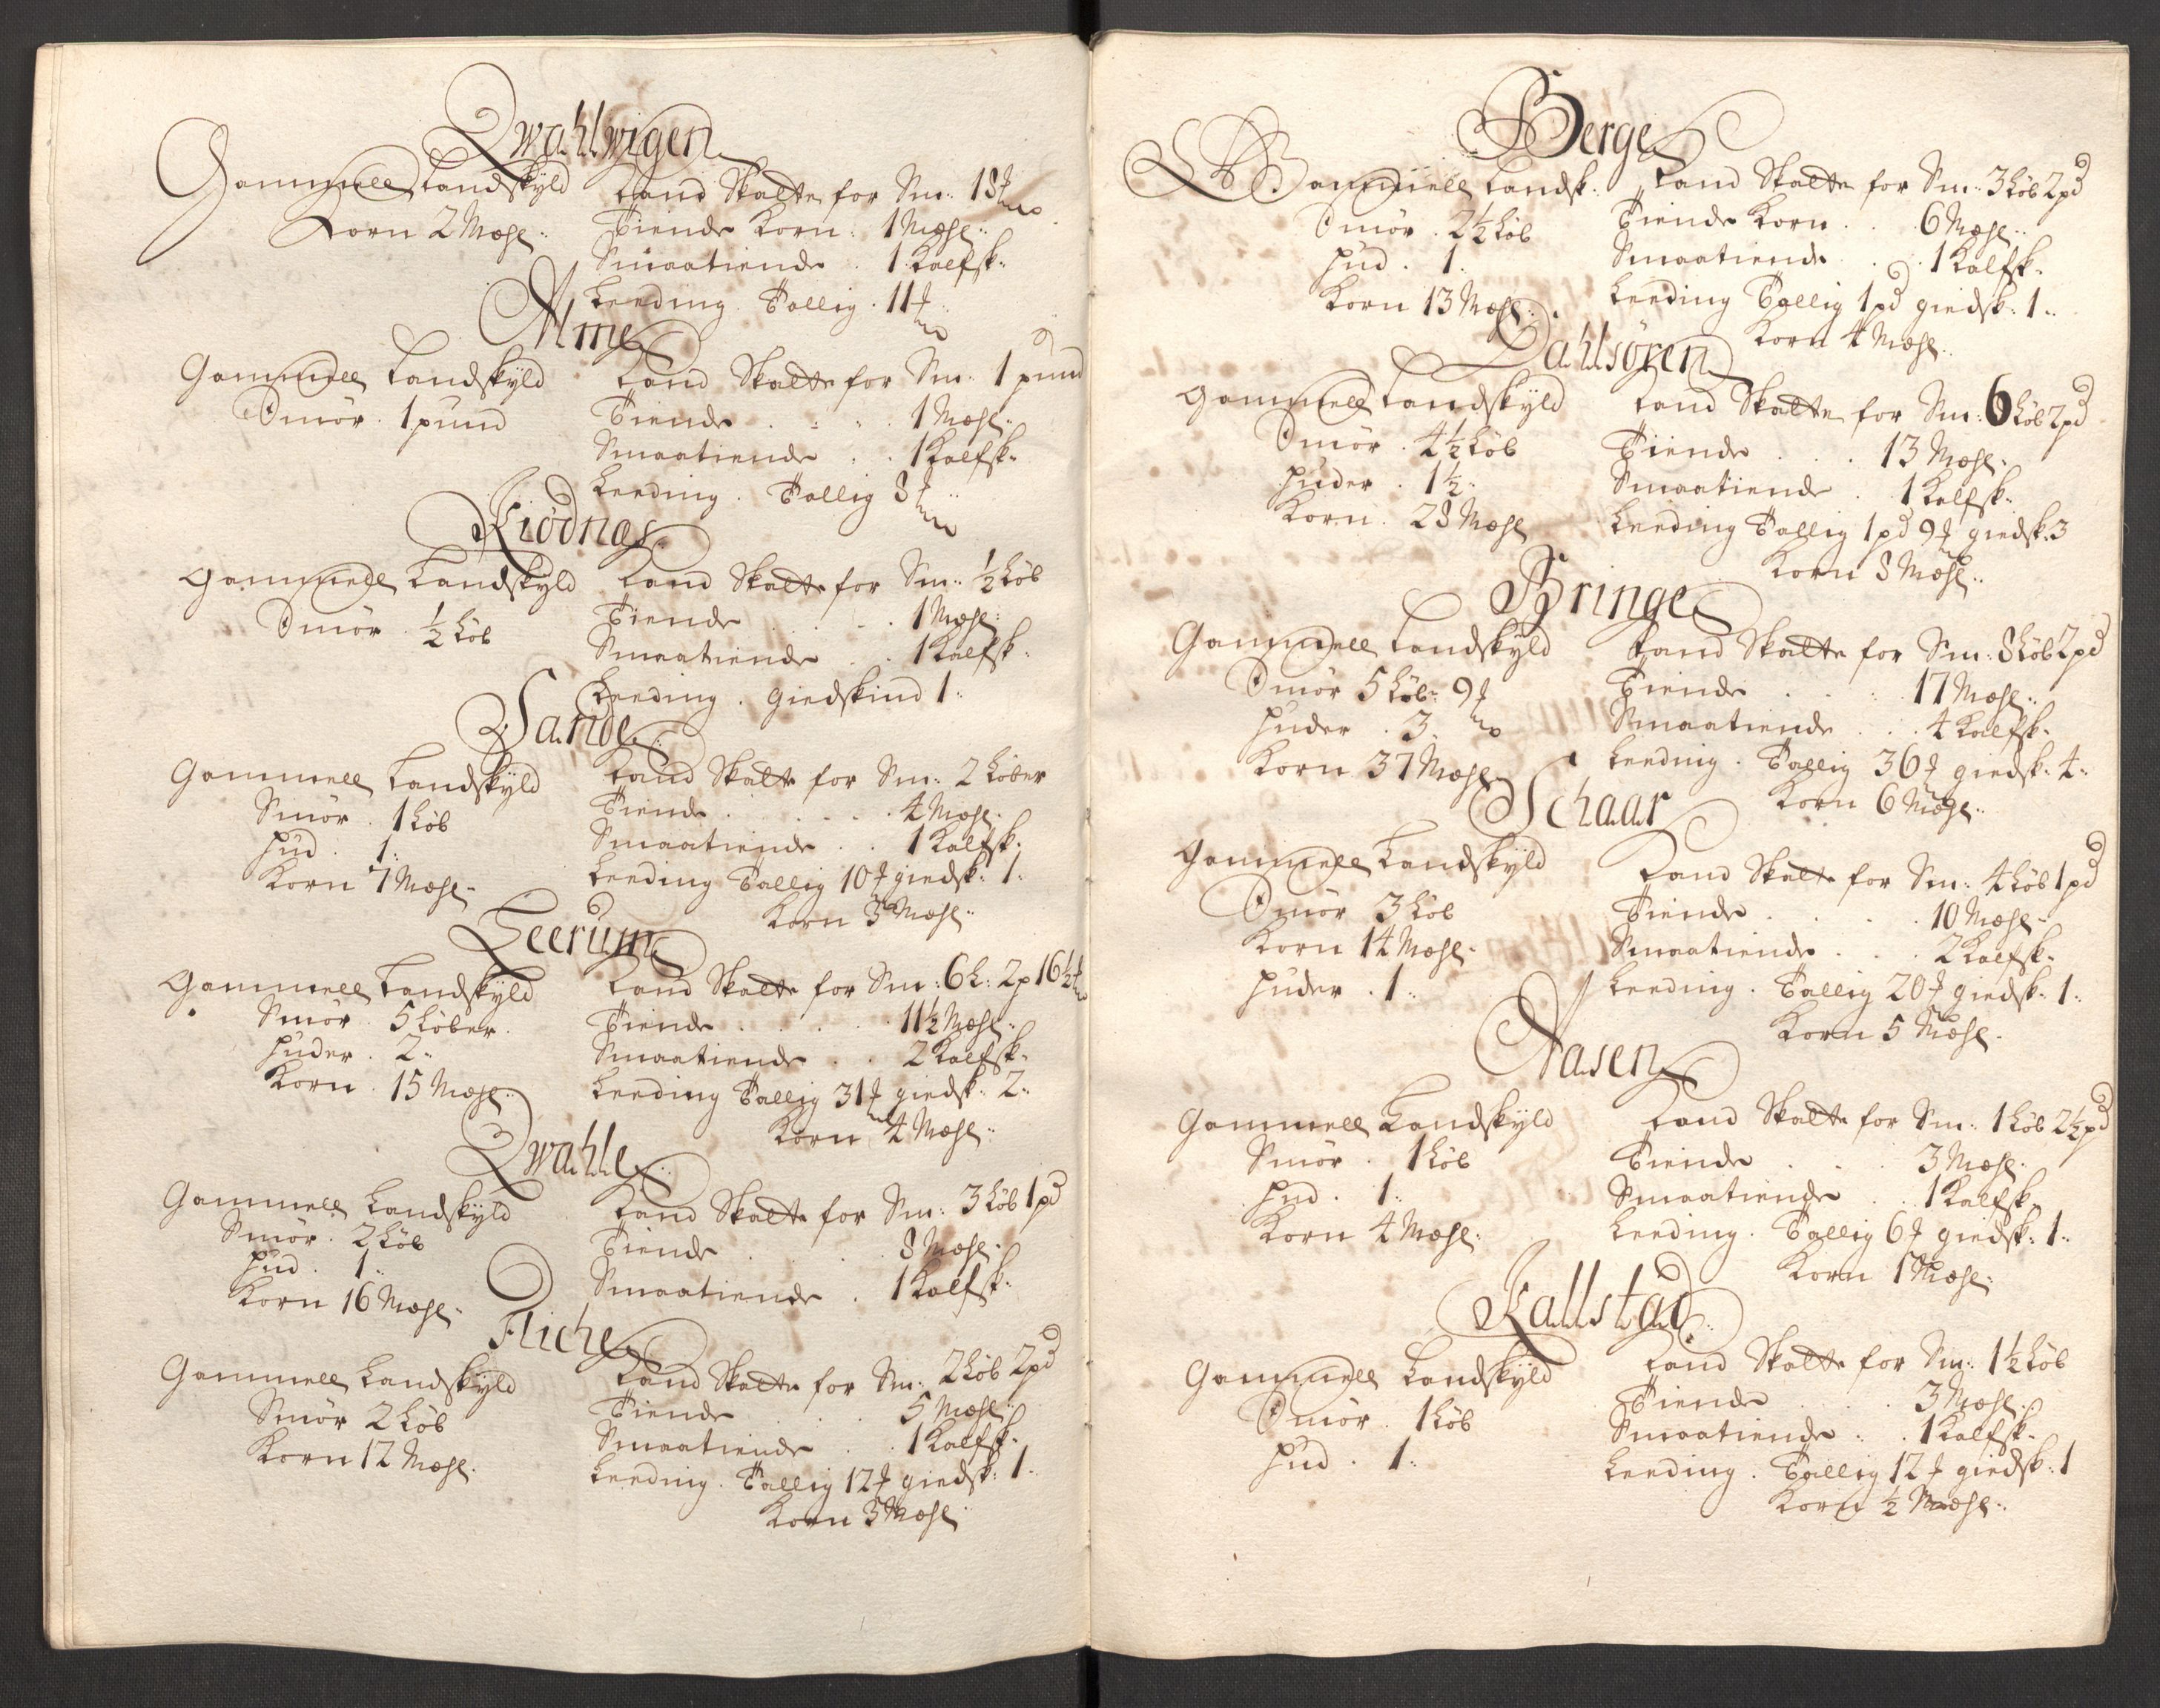 Qwahlwigen
Gammell Landskÿld
Korn 2 Mæhl:
Land Skatte for Sm: 18 ℔
Tiende Korn: 1 Mæhl:
Smaatiende . 1 Kalfsk:
Leeding . Tallig . 11 ℔
Alme
Gammell Landskÿld
Smör . 1 pund
Land Skatte for Sm: 1 pund
Tiende . . . 1 Mæhl:
Smaatiende . . 1 Kalfsk:
Leeding . Tallig 8 ℔
Kiödnæs
Gammell Landskÿld
Smör . ½ Löb
Land Skatte for Sm: ½ Löb
Tiende . . . 1 Mæhl:
Smaatiende . . 1 Kalfsk:
Leeding . giedskind 1:
Sande
Gammell Landskÿld
Smör . 1 Löb
Hud . 1:
Korn 7 Mæhl:
Land Skatte for Sm: 2 Löber
Tiende . . . . 4 Mæhl:
Smaatiende . . 1 Kalfsk:
Leeding Tallig 10 ℔ giedsk: 1:
Korn 3 Mæhl:
Leerum
Gammell Landskÿld
Smör . 5 Löber
Huder . 2:
Korn . 15 Mæhl:
Land Skatte for Sm: 6 L: 2 p 16½ ℔
Tiende . . . . 11½ Mæhl:
Smaatiende . . 2 Kalfsk:
Leeding Tallig 31 ℔ giedsk: 2:
Korn 4 Mæhl:
Qwahle
Gammell Landskÿld
Smör . 2 Löb
Hud . 1:
Korn 16 Mæhl:
Land Skatte for Sm: 3 Löb 1 pd
Tiende . . . 8 Mæhl:
Smaatiende . 1 Kalfsk:
Fliche
Gammell Landskÿld
Smör 2 Löb
Korn 12 Mæhl:
Land Skatte for Sm: 2 Löb 2 pd
Tiende . . . 5 Mæhl:
Smaatiende . . 1 Kalfsk:
Leeding . Tallig 12 ℔ giedsk: 1:
Korn 3 Mæhl
Berge
Gammell Landsk:
Smör . 2½ Löb
Hud . 1.
Korn 13 Mæhl:
Land Skatte for Sm: 3 Löb 2 pd
Tiende Korn . . 6 Mæhl:
Smaatiende . . 1 Kalfsk:
Leeding Tallig 1 pd giedsk: 1:
Korn 4 Mæhl:
Dahlsören
Gammell Landskÿld
Smör . 4½ Löb
Huder . 1½:
Korn . 28 Mæhl
Land Skatte for Sm: 6 Löb 2 pd
Tiende . . . 13 Mæhl:
Smaatiende . 1 Kalfsk:
Leeding Tallig 1 pd 9 ℔ giedsk: 3
Korn 8 Mæhl:
Bringe
Gammell Landskÿld
Smör 5 Löb: 9 ℔
Huder . 3.
Korn 37 Mæhl:
Land Skatte for Sm: 8 Löb 2 pd
Tiende . . . 17 Mæhl:
Smaatiende . . 4 Kalfsk:
Leeding . Tallig 36 ℔ giedsk: 4:
Korn 6 Mæhl:
Schaar
Gammell Landskÿld
Smör 3 Löb
Korn 14 Mæhl:
Huder . 1:
Land Skatte for Sm: 4 Löb 1 pd
Tiende . . . . 10 Mæhl:
Smaatiende . . . 2 Kalfsk:
Leeding . Tallig 20 ℔ giedsk: 1:
Korn 5 Mæhl:
Aasen
Gammell Landskÿld
Smör . 1 Löb
Hud . 1:
Korn 4 Mæhl:
Land Skatte for Sm: 1 Löb 2½ pd
Tiende . . . 3 Mæhl:
Smaatiende . . 1 Kalfsk:
Leeding . Tallig 6 ℔ giedsk: 1:
Korn 1 Mæhl:
Kallstad
Gammell Landskÿld
Smör . 1 Löb
Hud . 1:
Land Skatte for Sm: 1½ Löb
Tiende . . . 3 Mæhl:
Smaatiende . . 1 Kalfsk:
Leeding . Tallig 12 ℔ giedsk: 1
Korn ½ Mæhl: